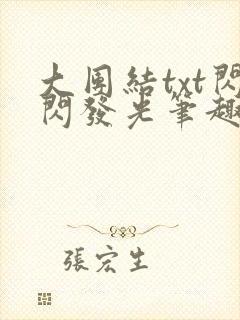 大團結txt閃
閃發光筆趣
張宏生